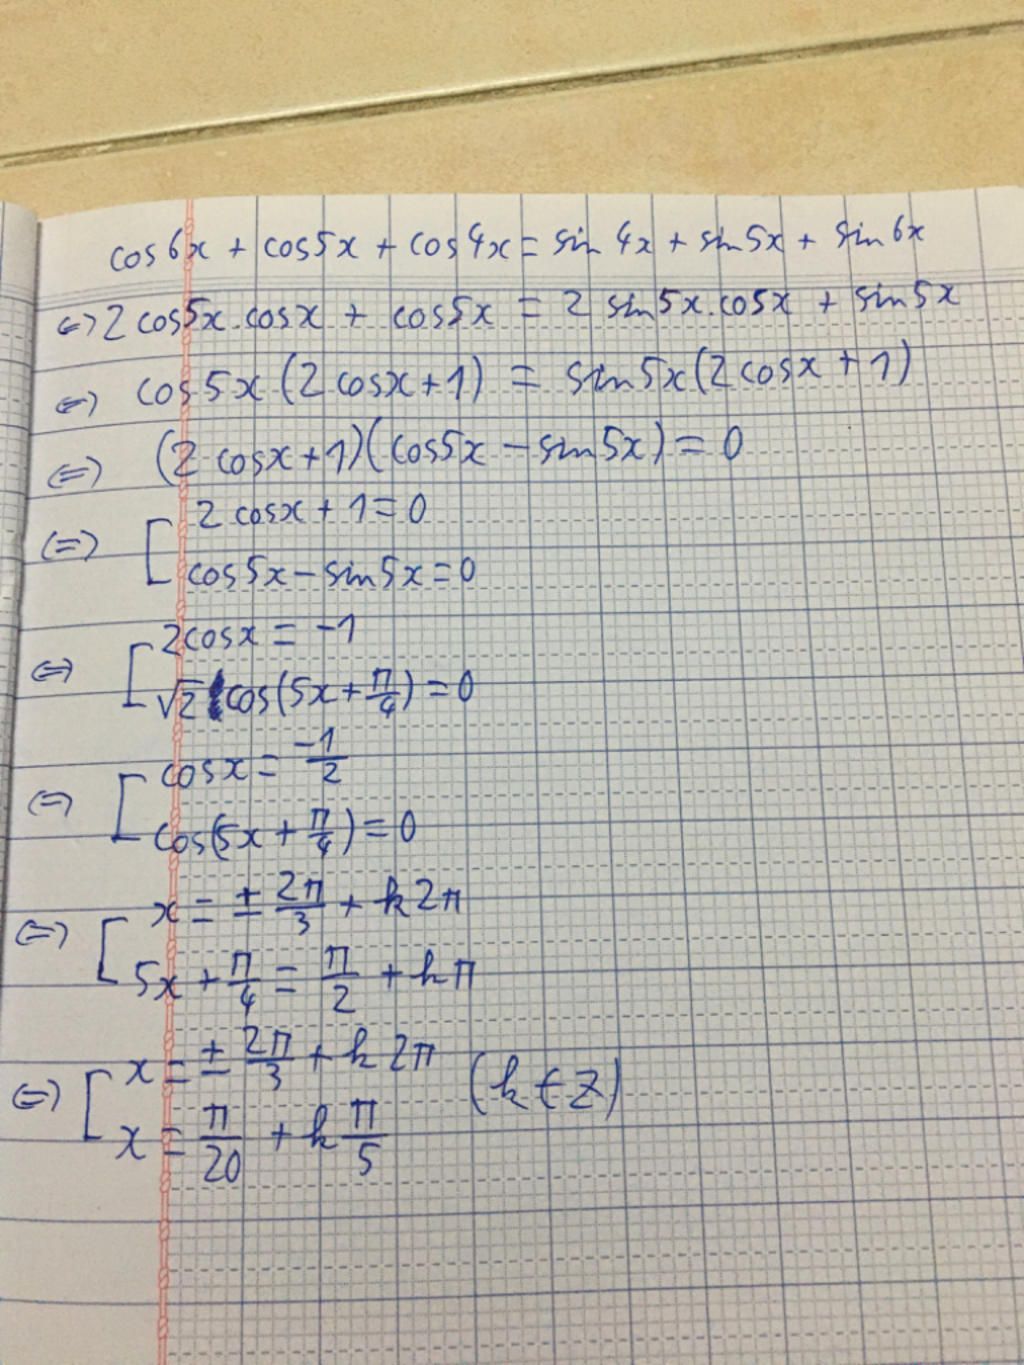 cos6x + cos5x + cos4x = sin4x + sin5x + sin6x
<=> 2cos5x.cosx + cos5x = 2 sin5x.cosx + sin5x
<=> cos5x(2cosx+1) = sin5x(2cosx+1)
<=> (2cosx+1)(cos5x − sin5x) = 0
<=> [ 2cosx + 1 = 0
cos5x − sin5x = 0
<=> [ 2cosx = −1
√2 cos(5x + π/4) = 0
<=> [ cosx = −1/2
cos(5x + π/4) = 0
<=> [ x = ± 2π/3 + k2π
5x + π/4 = π/2 + kπ
<=> [ x = ± 2π/3 + k2π (k ∈ Z)
x = π/20 + k π/5